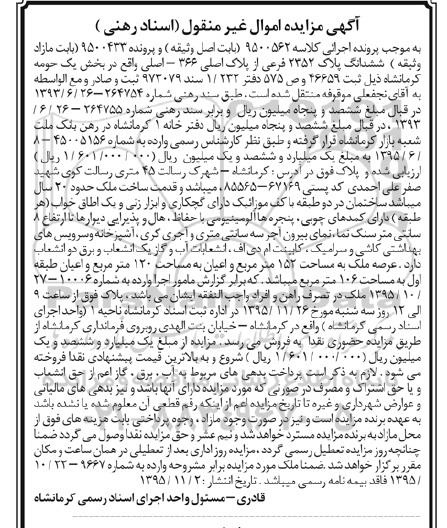 آگهی مزایده اموال غیر منقول (اسناد رهنی)
به موجب پرونده اجرائی کلاسه ۹۵۰۰۵۶۲ (بابت اصل وثیقه) و پرونده ۹۵۰۰۴۳۳ (بابت مازاد
وثیقه) ششدانگ پلاک ۲۳۵۲ فرعی از پلاک اصلی ۳۶۶ – اصلی واقع در بخش یک حومه
کرمانشاه ذیل ثبت ۴۶۶۵۹ و ص ۵۷۵ دفتر ۱/۲۳۲ سند ۹۷۳۰۷۹ ثبت و صادر و مع الواسطه
به آقای نجفعلی موقوفه منتقل شده است، طبق سند رهنی شماره ۲۶۴۷۵۴–۱۳۹۳/۶/۲۶
در قبال مبلغ ششصد و پنجاه میلیون ریال و برابر سند رهنی شماره ۲۶۴۷۵۵ – ۲۶/۶/
۱۳۹۳، در قبال مبلغ ششصد و پنجاه میلیون ریال دفتر خانه ۱ کرمانشاه در رهن بانک ملت
شعبه بازار کرمانشاه قرار گرفته و طبق نظر کارشناس رسمی وارده به شماره ۴۵۰۰۵۱۵۶–۸
/۶/۱۳۹۵ به مبلغ یک میلیارد و ششصد و یک میلیون ریال (۱/۶۰۱/۰۰۰/۰۰۰ ریال)
ارزیابی شده و پلاک فوق در آدرس : کرمانشاه – شهرک رسالت ۴۵ متری رسالت کوی شهید
صفر علی احمدی کد پستی ۶۷۱۶۹–۸۵۵۶۵، میباشد و قدمت ساخت ملک حدود ۲۰ سال
میباشد ساختمان در دو طبقه با کف موزائیک دارای گچکاری و ابزار زنی و یک اطاق خواب (هر
طبقه) دارای کمدهای چوبی، پنجره ها آلومینیومی با حفاظ، هال و پذیرایی دیوارها تا ارتفاع ۸
سانتی متر سنگ نما، نمای بیرون آجر سه سانتی متری و آجری گری، آشپزخانه و سرویس های
بهداشتی کاشی و سرامیک، کابینت ام دی اف، انشعابات آب و گاز یک انشعاب و برق دو انشعاب
دارد. عرصه ملک به مساحت ۱۵۲ متر مربع و اعیان به مساحت ۱۲۰ متر مربع و اعیان طبقه
اول به مساحت ۱۰۶ متر مربع میباشد. که برابر گزارش مامور اجرا وارده به شماره ۱۰۰۰۶–۲۷
/۱۰/۱۳۹۵ ملک در تصرف راهن و افراد واجب النفقه ایشان می باشد، پلاک فوق از ساعت ۹
الی ۱۲ روز سه شنبه مورخ ۱۳۹۵/۱۱/۲۶ در اداره ثبت اسناد کرمانشاه ناحیه ۱ (واحد اجرای
اسناد رسمی کرمانشاه) واقع در کرمانشاه – خیابان بنت الهدی روبروی فرمانداری کرمانشاه از
طریق مزایده حضوری نقداً به فروش می رسد. مزایده از مبلغ یک میلیارد و ششصد و یک
میلیون ریال (۱/۶۰۱/۰۰۰/۰۰۰ ریال) شروع و به بالاترین قیمت پیشنهادی نقداً فروخته
می شود. لازم به ذکر است پرداخت بدهی های مربوط به آب، برق، گاز اعم از حق انشعاب
و یا حق اشتراک و مصرف در صورتی که مورد مزایده دارای آنها باشد و نیز بدهی های مالیاتی
و عوارض شهرداری و غیره تا تاریخ مزایده اعم از اینکه رقم قطعی آن معلوم شده یا نشده باشد
به عهده برنده مزایده است و نیز در صورت وجود مازاد، وجوه پرداختی بابت هزینه های فوق از
محل مازاد به برنده مزایده مسترد خواهد شد و نیم عشر و حق مزایده نقداً وصول می گردد ضمنا
چنانچه روز مزایده تعطیل رسمی گردد، مزایده روز اداری بعد از تعطیلی در همان ساعت و مکان
مقرر برگزار خواهد شد. ضمنا ملک مورد مزایده برابر مشروحه وارده به شماره ۹۶۶۷–۲۲/۱۰
/۱۳۹۵ فاقد بیمه نامه رسمی میباشد. تاریخ انتشار : ۱۳۹۵/۱۱/۲
قادری – مسئول واحد اجرای اسناد رسمی کرمانشاه